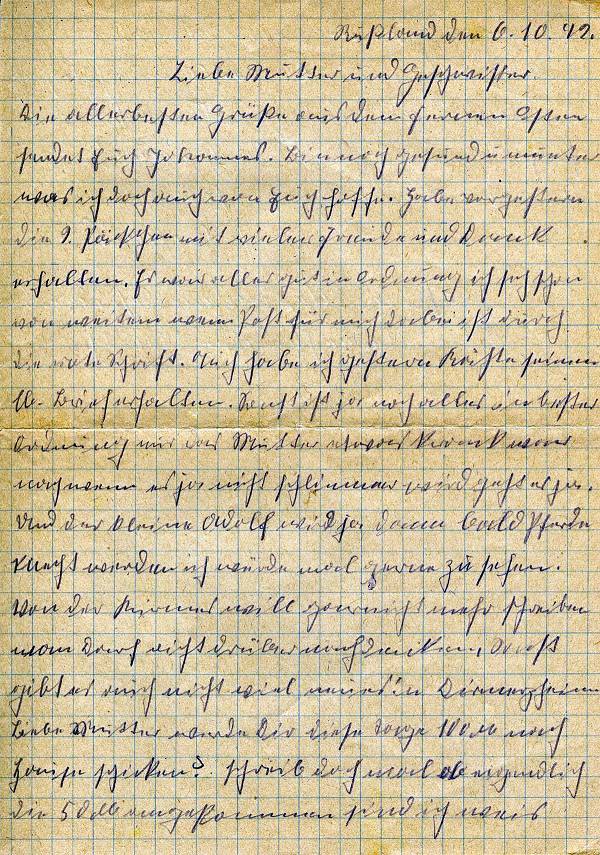 Rußland den 6.10.42.
Liebe Mutter und Geschwister.
Die allerbesten Grüße aus dem fernen Osten
sendet Euch Johannes. Bin noch gesund u munter
was ich doch auch von Euch hoffe. Habe vorgestern
die 9. Päckchen mit vieler Freude und Dank
erhalten. Es war alles gut in Ordnung ich seh schon
von weitem wenn Post für mich dabei ist durch
die rote Schrift. Auch habe ich gestern seinen
lb. Brief erhalten. Sonst ist ja noch alles in bester
Ordnung nur das Mutter etwas krank war
nach wenn es ja nicht schlimmer wird geht es ja.
Und der kleine Adolf wird ja dann bald Pferde
knecht werden ich würde mal gerne zu sehen.
Von der Kirmes will garnicht mehr schreiben
man darf nicht drüber nachdenken, Sonst
gibt es auch nicht viel neues in Dirmerzheim
Liebe Mutter werde Dir diese Tage 100 M nach
Hause schicken? schreib doch mal ob eigendlich
die 50 M angekommen sind ich weis